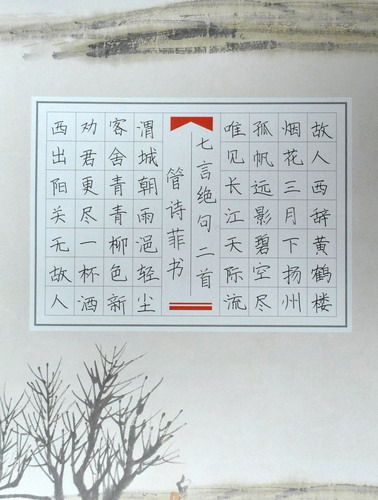 故人西辞黄鹤楼
烟花三月下扬州
孤帆远影碧空尽
唯见长江天际流
七言绝句二首
管诗菲书
渭城朝雨浥轻尘
客舍青青柳色新
劝君更尽一杯酒
西出阳关无故人